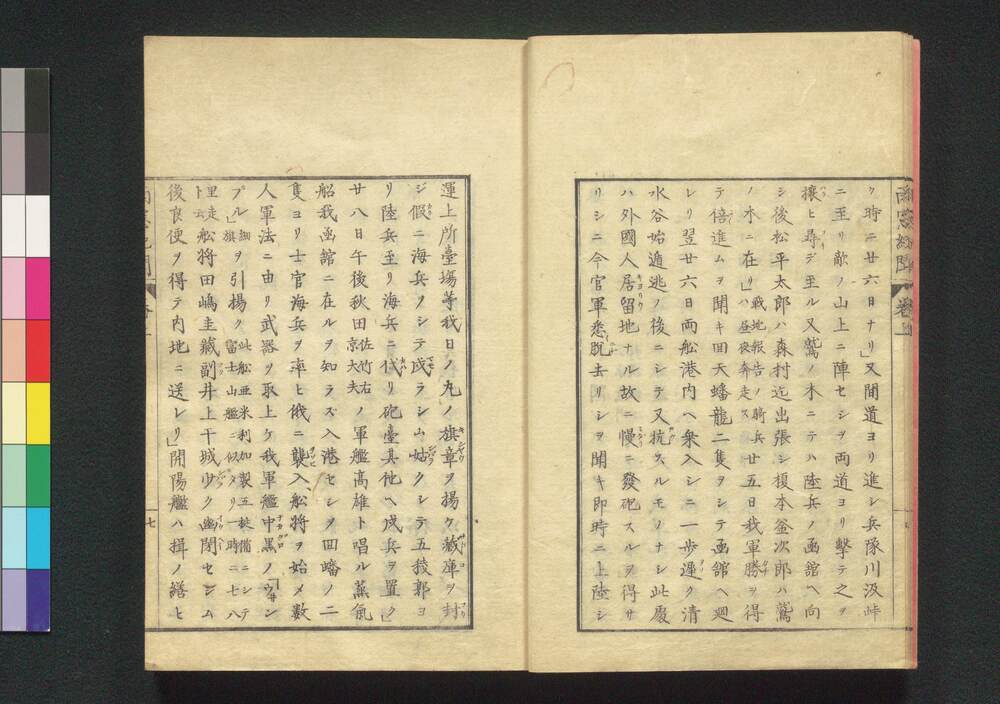 ク時ニ廿六日ナリ」又間道ヨリ進シ兵隊川汲峠
ニ至リ敵ノ山上ニ陣セシヲ両道ヨリ撃テ之ヲ
攘ヒ尋デ至ル又鷲ノ木ニテハ陸兵ノ函館ヘ向
シ後松平太郎ハ森村迄出張シ榎本釜次郎ハ鷲
ノ木ニ在リ」戦地報告ノ騎兵廿五日我軍勝ヲ得
ハ昼夜奔走ス
テ倍進ムヲ聞キ回天蟠龍二隻ヲシテ函館ヘ廻
レリ翌廿六日両舩港内ヘ乗入シニ一歩遅ク清
水谷始遁逃ノ後ニシテ又抗スルモノナシ此處
ハ外國人居留地ナル故ニ慢ニ發砲スルヲ得サ
リシニ今官軍悉脱去リシヲ聞キ即時ニ上陸シ
運上所臺塲等我日ノ丸ノ旗章ヲ揚ク藏庫ヲ封
ジ假ニ海兵ヲシテ戍ラシム姑クシテ五稜郭ヨ
リ陸兵至リ海兵ニ代リ砲臺其他ヘ戍兵ヲ置ク」
廿八日午後秋田佐竹右ノ軍艦高雄ト唱ル蒸氣
京大夫
船我函館ニ在ルヲ知ラズ入港セシヲ回蟠ノ二
隻ヨリ士官海兵ヲ率ヒ俄ニ襲入舩将ヲ始メ数
人軍法ニ由リ武器ヲ取上ケ我軍艦中黒ノ
プル」細旗ヲ引揚ク此舩亜米利加製五挺備ニシテ
富士山艦ニ似タリ一時ニ七八
里走ト云舩将田嶋圭藏副井上干城少ク幽閉セシム
後良便ヲ得テ内地ニ送レリ」開陽艦ハ揖ノ繕ヒ
七